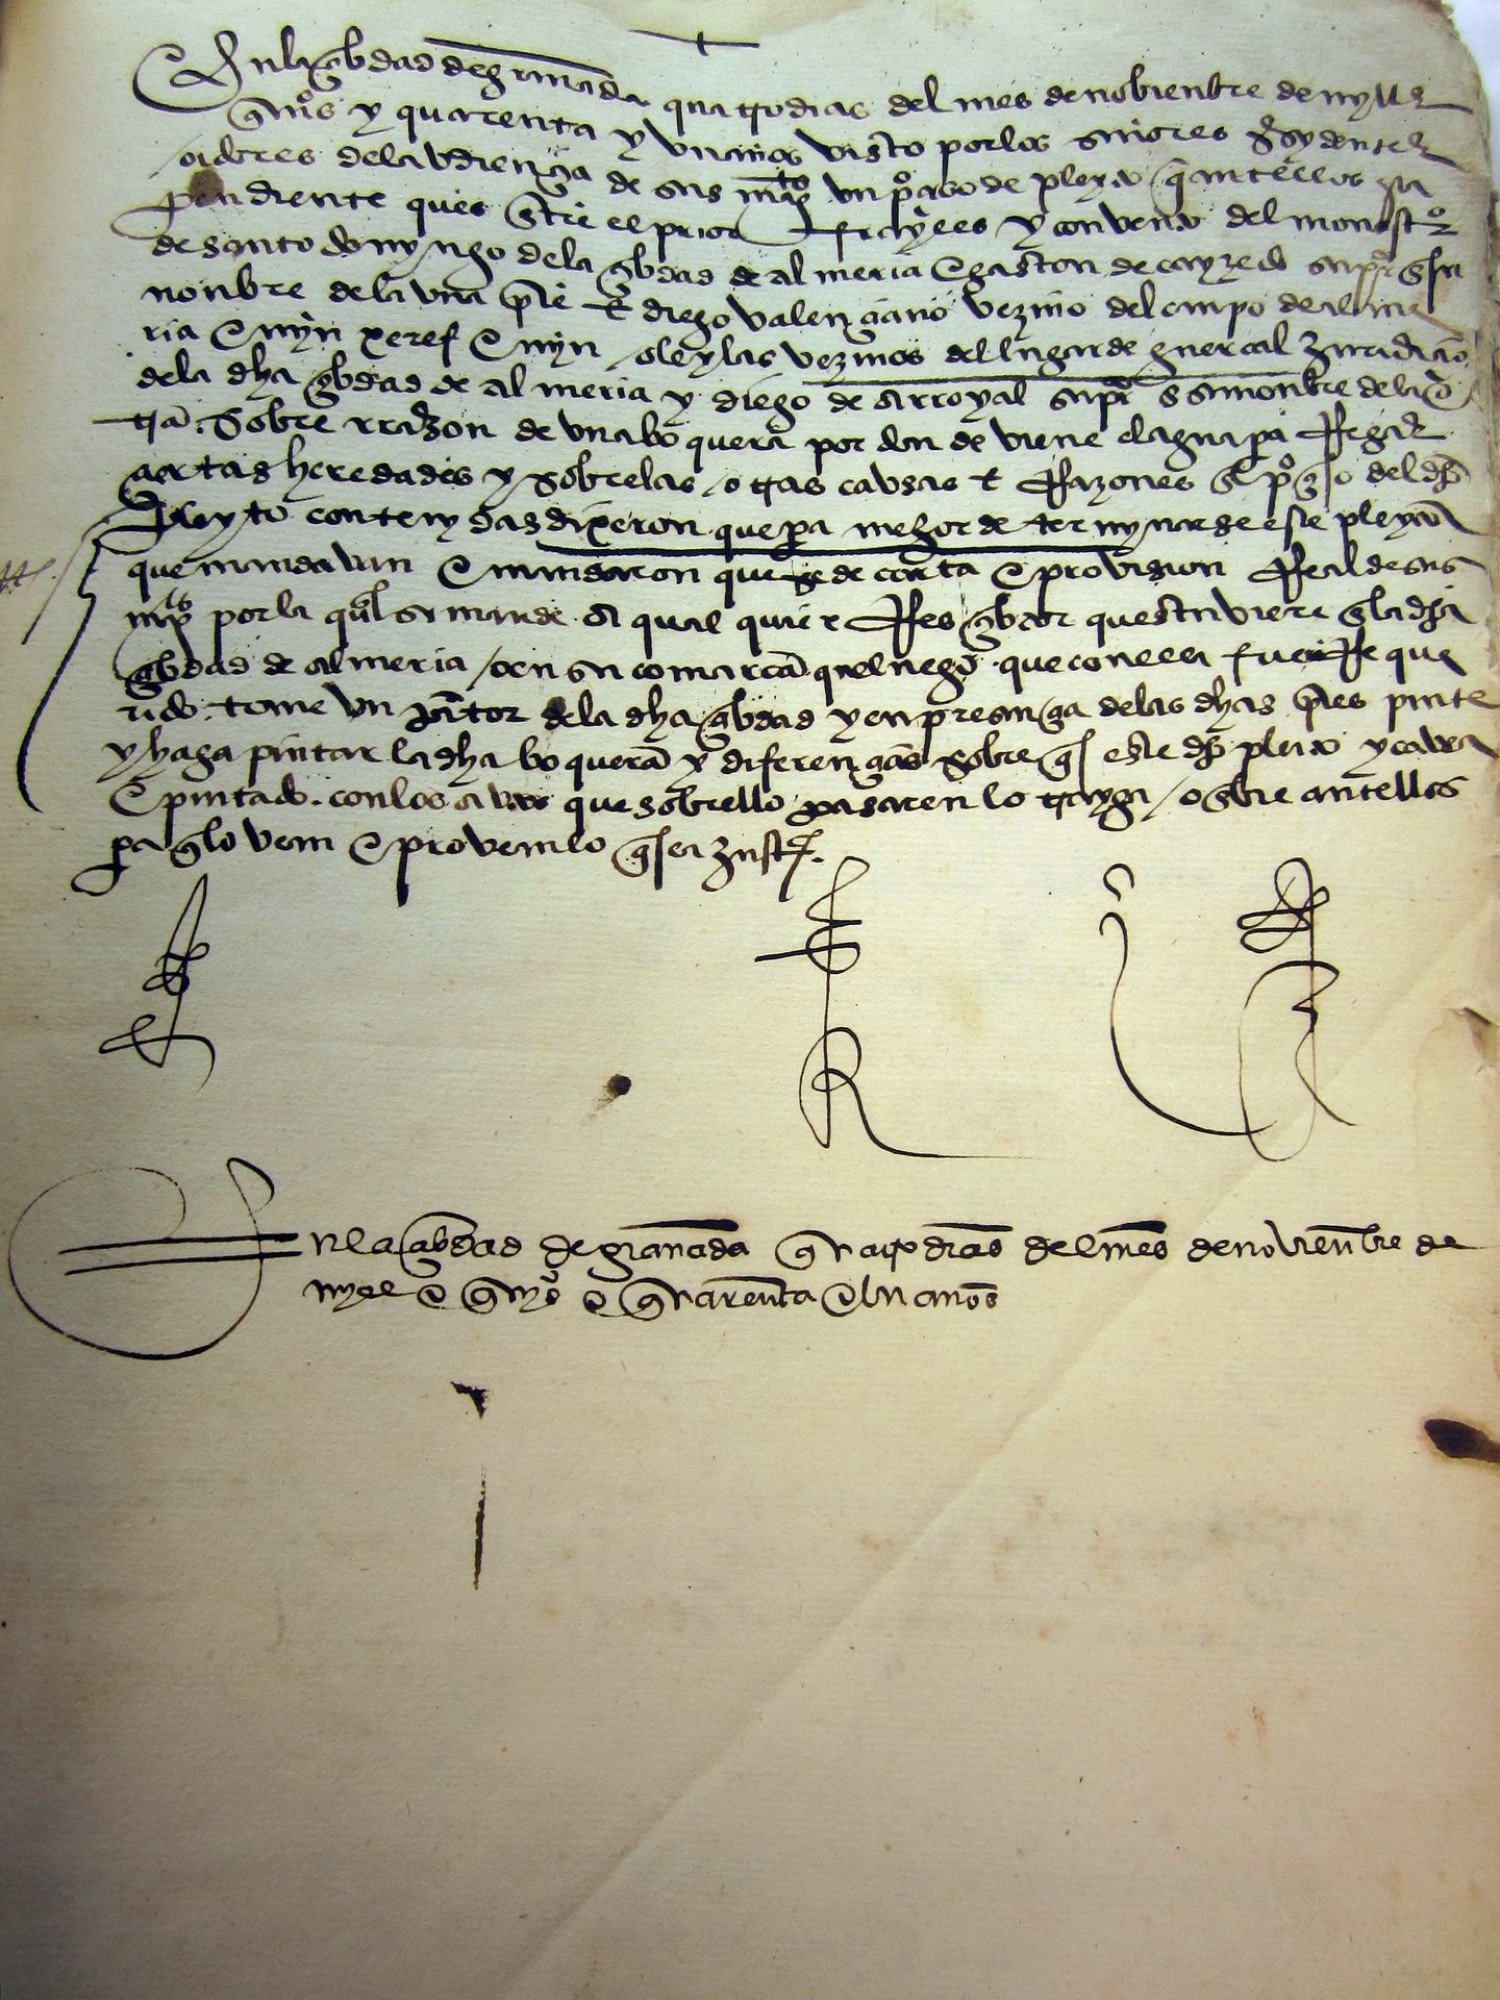 En la çibdad de granada quatro dias del mes de nobienbre de myll e
qui°s y quarenta y un años visto por los señores presydente e
oidores de la audiençia de sus mag.tes un proçeso de pleyto que antellos esta
pendiente que es entre el prior frayles y convento del monest.°
de santo domyngo de la çibdad de almeria e gaston de cayzedo su pr° en su
nonbre de la una p̃te e diego valençiano vezino del canpo de alme
ria e myn xeref e myn oleylas vezinos del lugar de guercal juridiçion
de la dha çibdad de almeria y diego de arroyal su pr° en su nonbre de la o
tra sobre rrazon de una boquera por donde viene el agua pa rregar
çiertas heredades y sobre las otras cabsas e rrazones en el proçeso del dho
pleyto contenydas dixeron que pa mejor determynarse este pleyto
que mandavan e mandaron que se de carta e provision rreal de sus
mag.tes por la qual se mande a qual quier rreçebtor que estuviere en la dha
çibdad de almeria o en su comarca quel nego° que con ella fuere rreque
rido tome un pintor de la dha çibdad y en presençia de las dhas p̃tes pinte
y haga pintar la dha boquera y diferençias sobre que es este dho pleito y
e pintado con los avtos que sobrello pasaren lo trayga o enbie antellos
pa que lo vean e provean lo que sea just.ª
En la çibdad de granada quatro dias del mes de noviembre de
myll e quiº e quarenta e un años